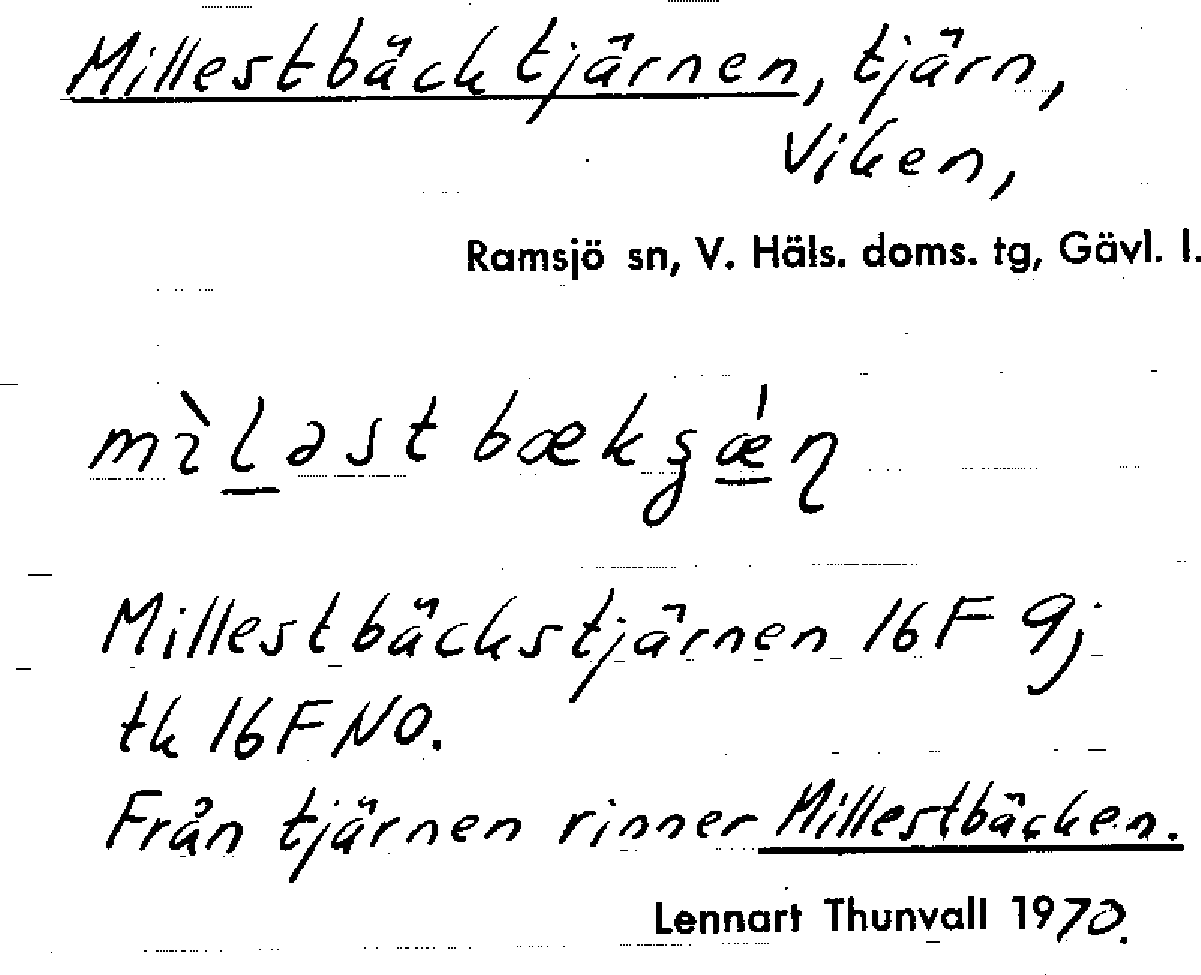 Millestbäcktjärnen, tjärn,
Viken,
Ramsjö sn, V. Häls. doms. tg, Gävl. l.
Millestbäckstjärnen 16F 9j
tk 16F NO.
Från tjärnen rinner Millestbäcken.
Lennart Thunvall 1970.